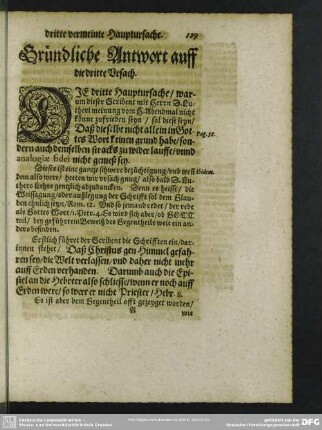 dritte vermeinte Hauptursache. 129
Gründliche Antwort auff
die dritte Vrsach.
DIE dritte Hauptursache/ war-
umb dieser Scribent mit Herrn D. Lu-
theri meinung vom H. Abendmal nicht
könne zufrieden seyn / sol diese seyn/
Daß dieselbe nicht allein in Got-
tes Wort keinen grund habe/ son-
dern auch demselben stracks zu wider lauffe/ vnnd
analogiæ fidei nicht gemeß sey.
Dieses ist eine gantze schwere bezüchtigung/ vnd weñ
dem also were/ hetten wir vrsach gnug/ also bald D. Lu-
thers lehre gentzlich abzudancken. Denn es heisst/ die
Weissagung/ oder außlegung der Schrifft sol dem Glau-
ben ehnlich seyn/ Rom. 12. Vnd so jemand redet/ der rede
als Gottes Wort/ 1. Petr. 4. Es wird sich aber/ ob GOTT
wil/ bey geführtem Beweiß des Gegentheils weit ein an-
ders befinden.
Erstlich führet der Scribent die Schrifften ein/ dar-
innen stehet/ Daß Christus gen Himmel gefah-
ren sey/ die Welt verlassen/ vnd daher nicht mehr
auff Erden verhanden. Darumb auch die Epi-
stel an die Hebreer also schliesse/ wenn er noch auff
Erden were/ so were er nicht Priester/ Hebr. 8.
Es ist aber dem Gegentheil offt gezeyget worden/
R wie
DFG